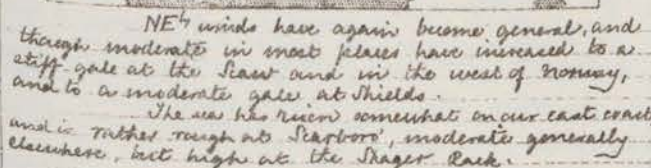 NEly winds have again become general, and
though moderate in most places have increased to a
stiff gale at the Scaw and in the west of Norway,
and to a moderate gale at Shields.
The sea has risen somewhat on our east coast
and is rather rough at Scarboro', moderate generally
elsewhere, but high at the Skager Rack.